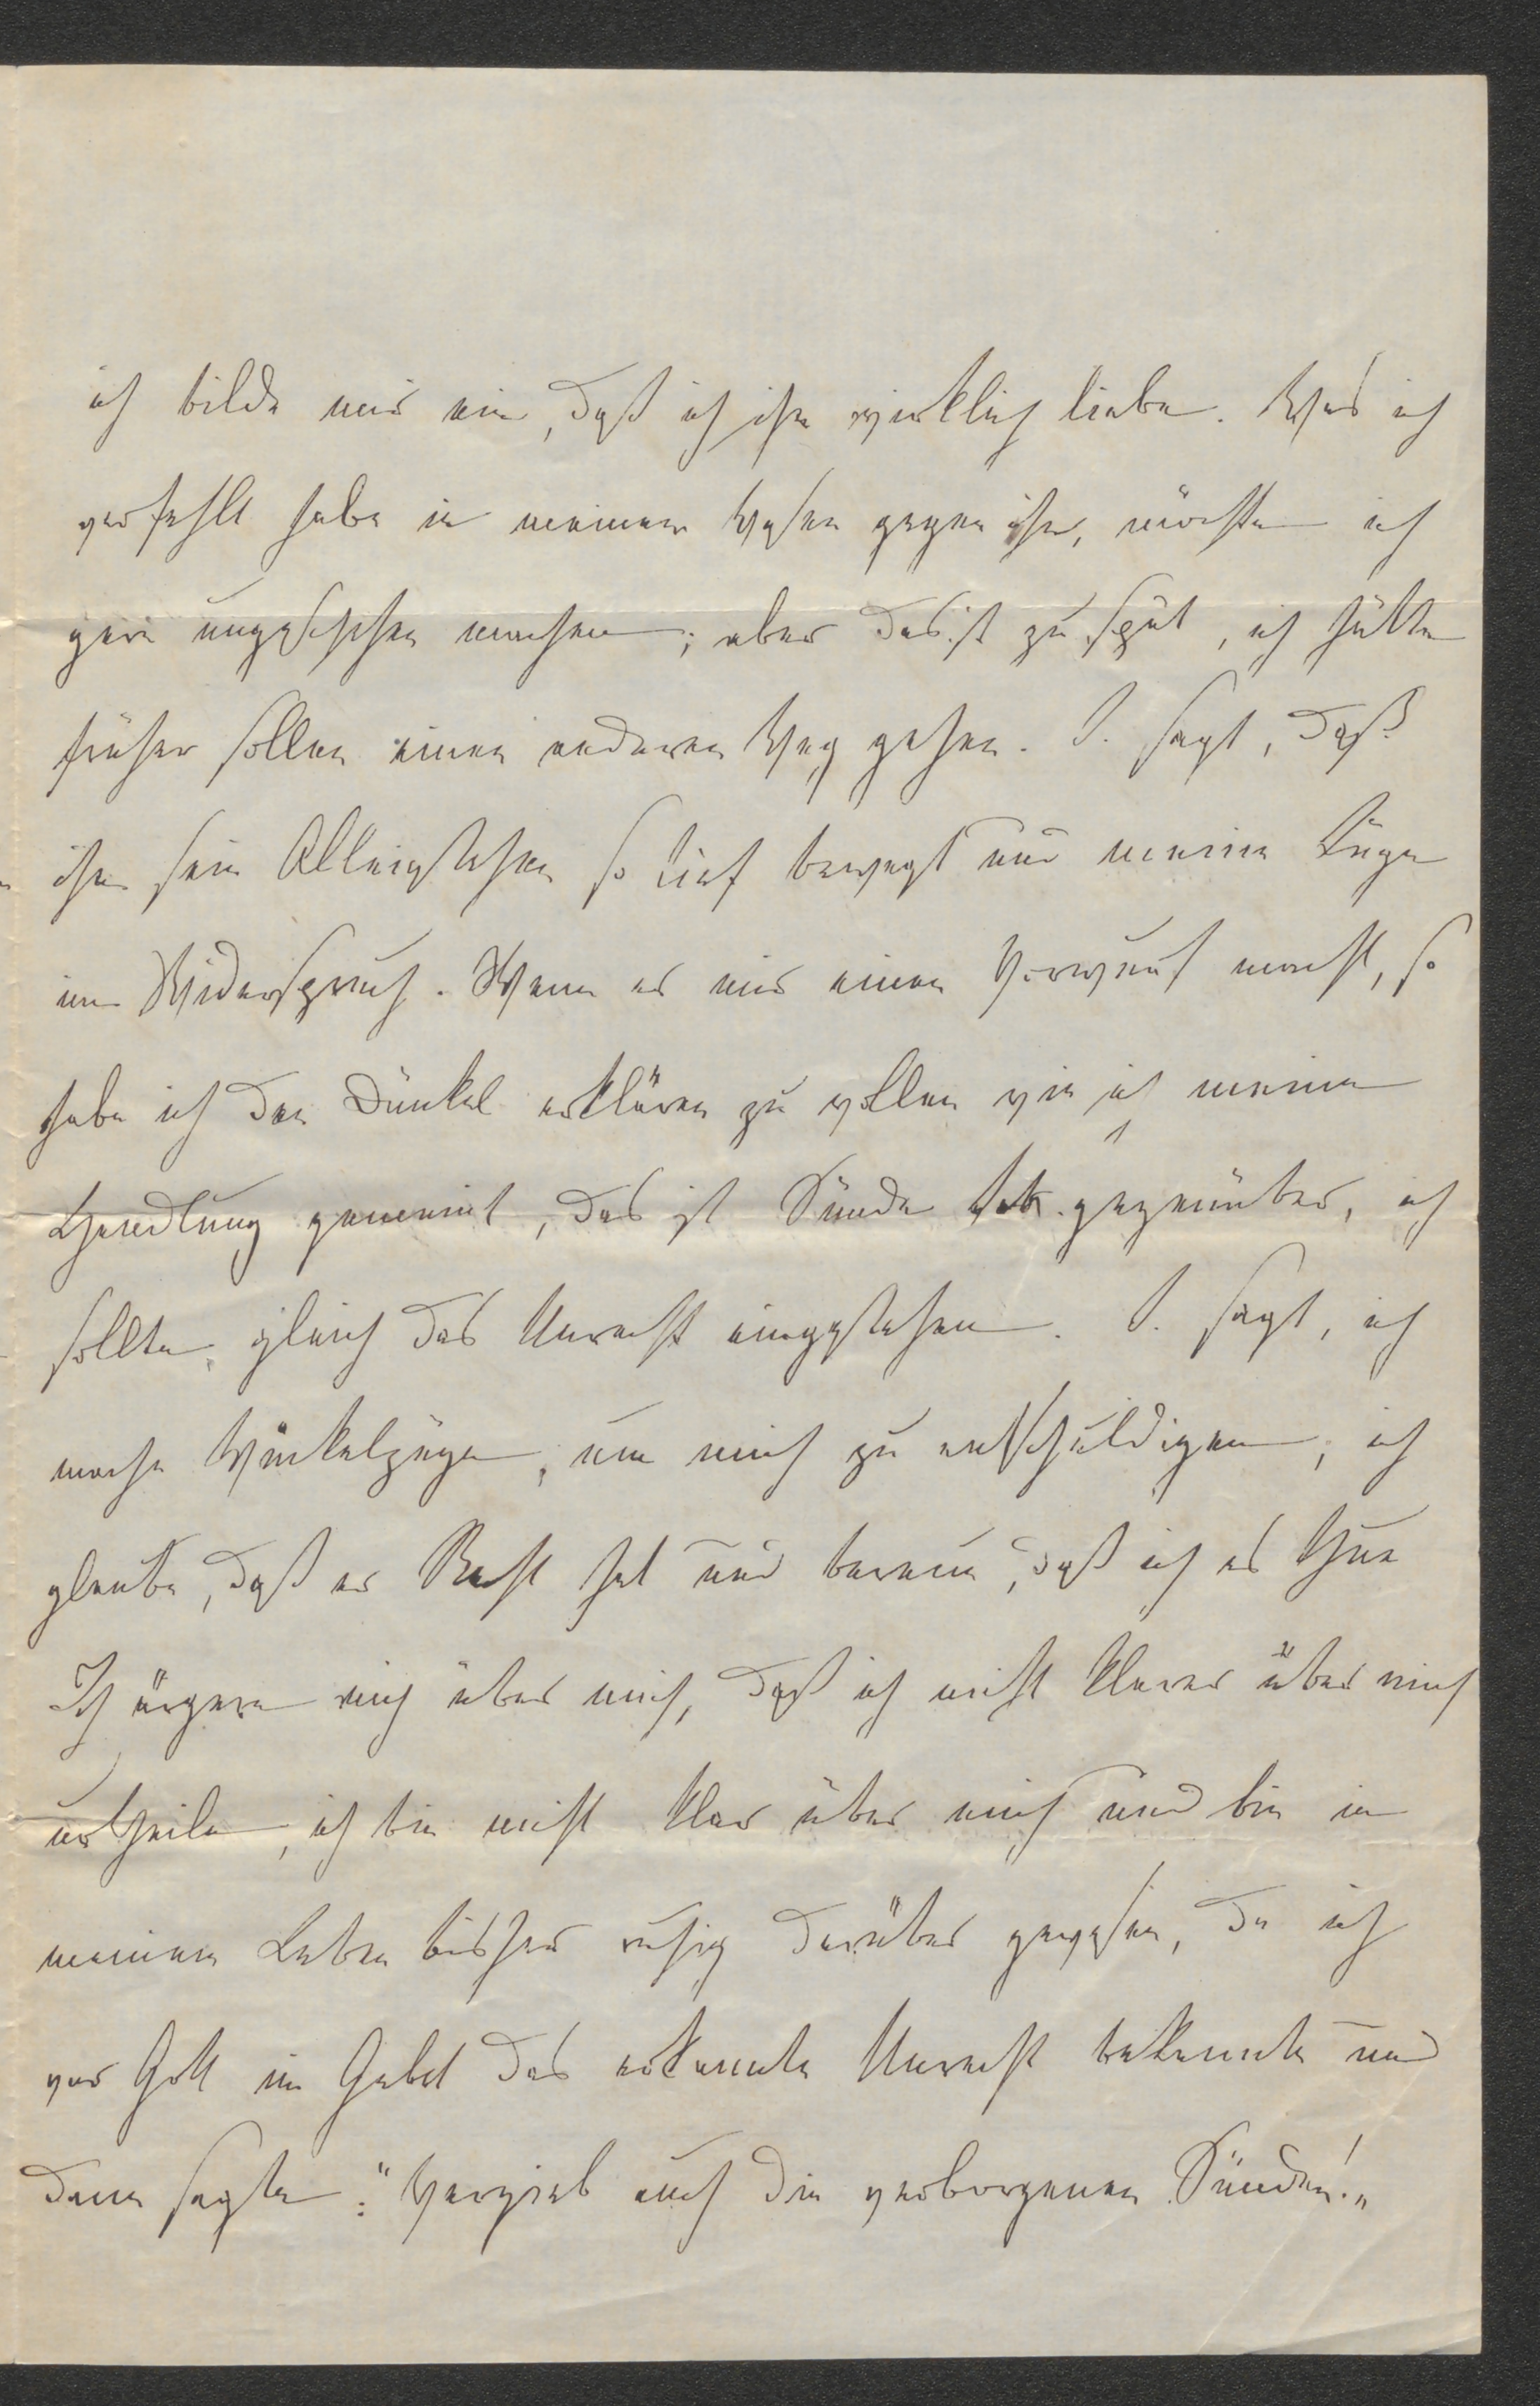 ich bilde mir ein, daß ich ihn wirklich liebe. Was ich
verfehlt habe in meinem Wesen gegen ihn, möchte ich
gern ungeschehen machen; aber das ist zu spät, ich hätte
früher sollen einen anderen Weg gehen. J. sagt, daß
ihn sein Alleinstehen so tief bewegt und meine Lüge
im Widerspruch. Wenn er mir einen Vorwurf macht, so
habe ich den Dünkel erklären zu wollen wie ich meine
Handlung gemeint, das ist Sünde gegenüber, ich
sollte gleich das Unrecht eingestehen. J. sagt, ich
mache Winkelzüge, um mich zu entschuldigen; ich
glaube, daß er Recht hat und bereue, daß ich es thue
Ich ärgere mich über mich, daß ich nicht klarer über mich
urtheile, ich bin nicht klar über mich und bin in
meinem Leben bisher ruhig darüber gewesen, da ich
vor Gott im Gebet das erkannte Unrecht bekannte und
dann sagte: "Vergieb auch die verborgenen Sünden!"